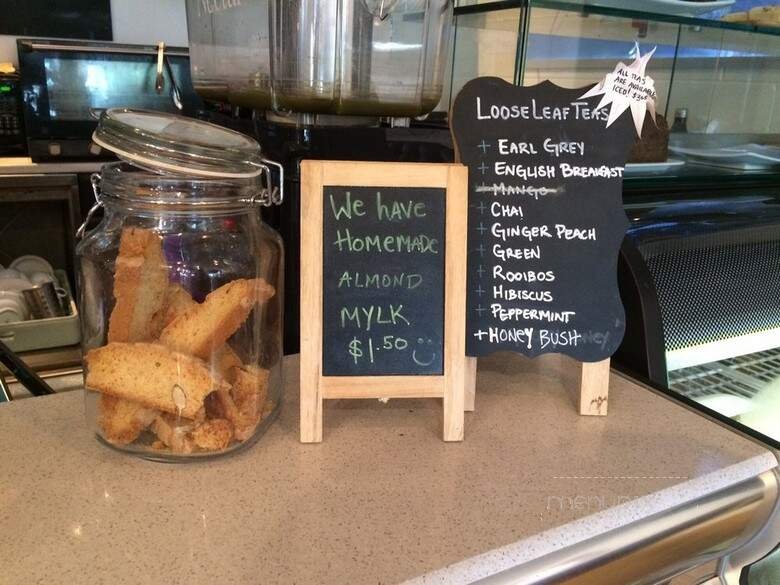 We have
Homemade
ALMOND
MYLK
$1.50
LOOSE LEAF TEAS
ALL TEAS
ARE AVAILABLE
ICED!
+ EARL GREY
+ ENGLISH BREAKFAST
+ MANGO
+ CHAI
+ GINGER PEACH
+ GREEN
+ ROOIBOS
+ HIBISCUS
+ PEPPERMINT
+ HONEY BUSH